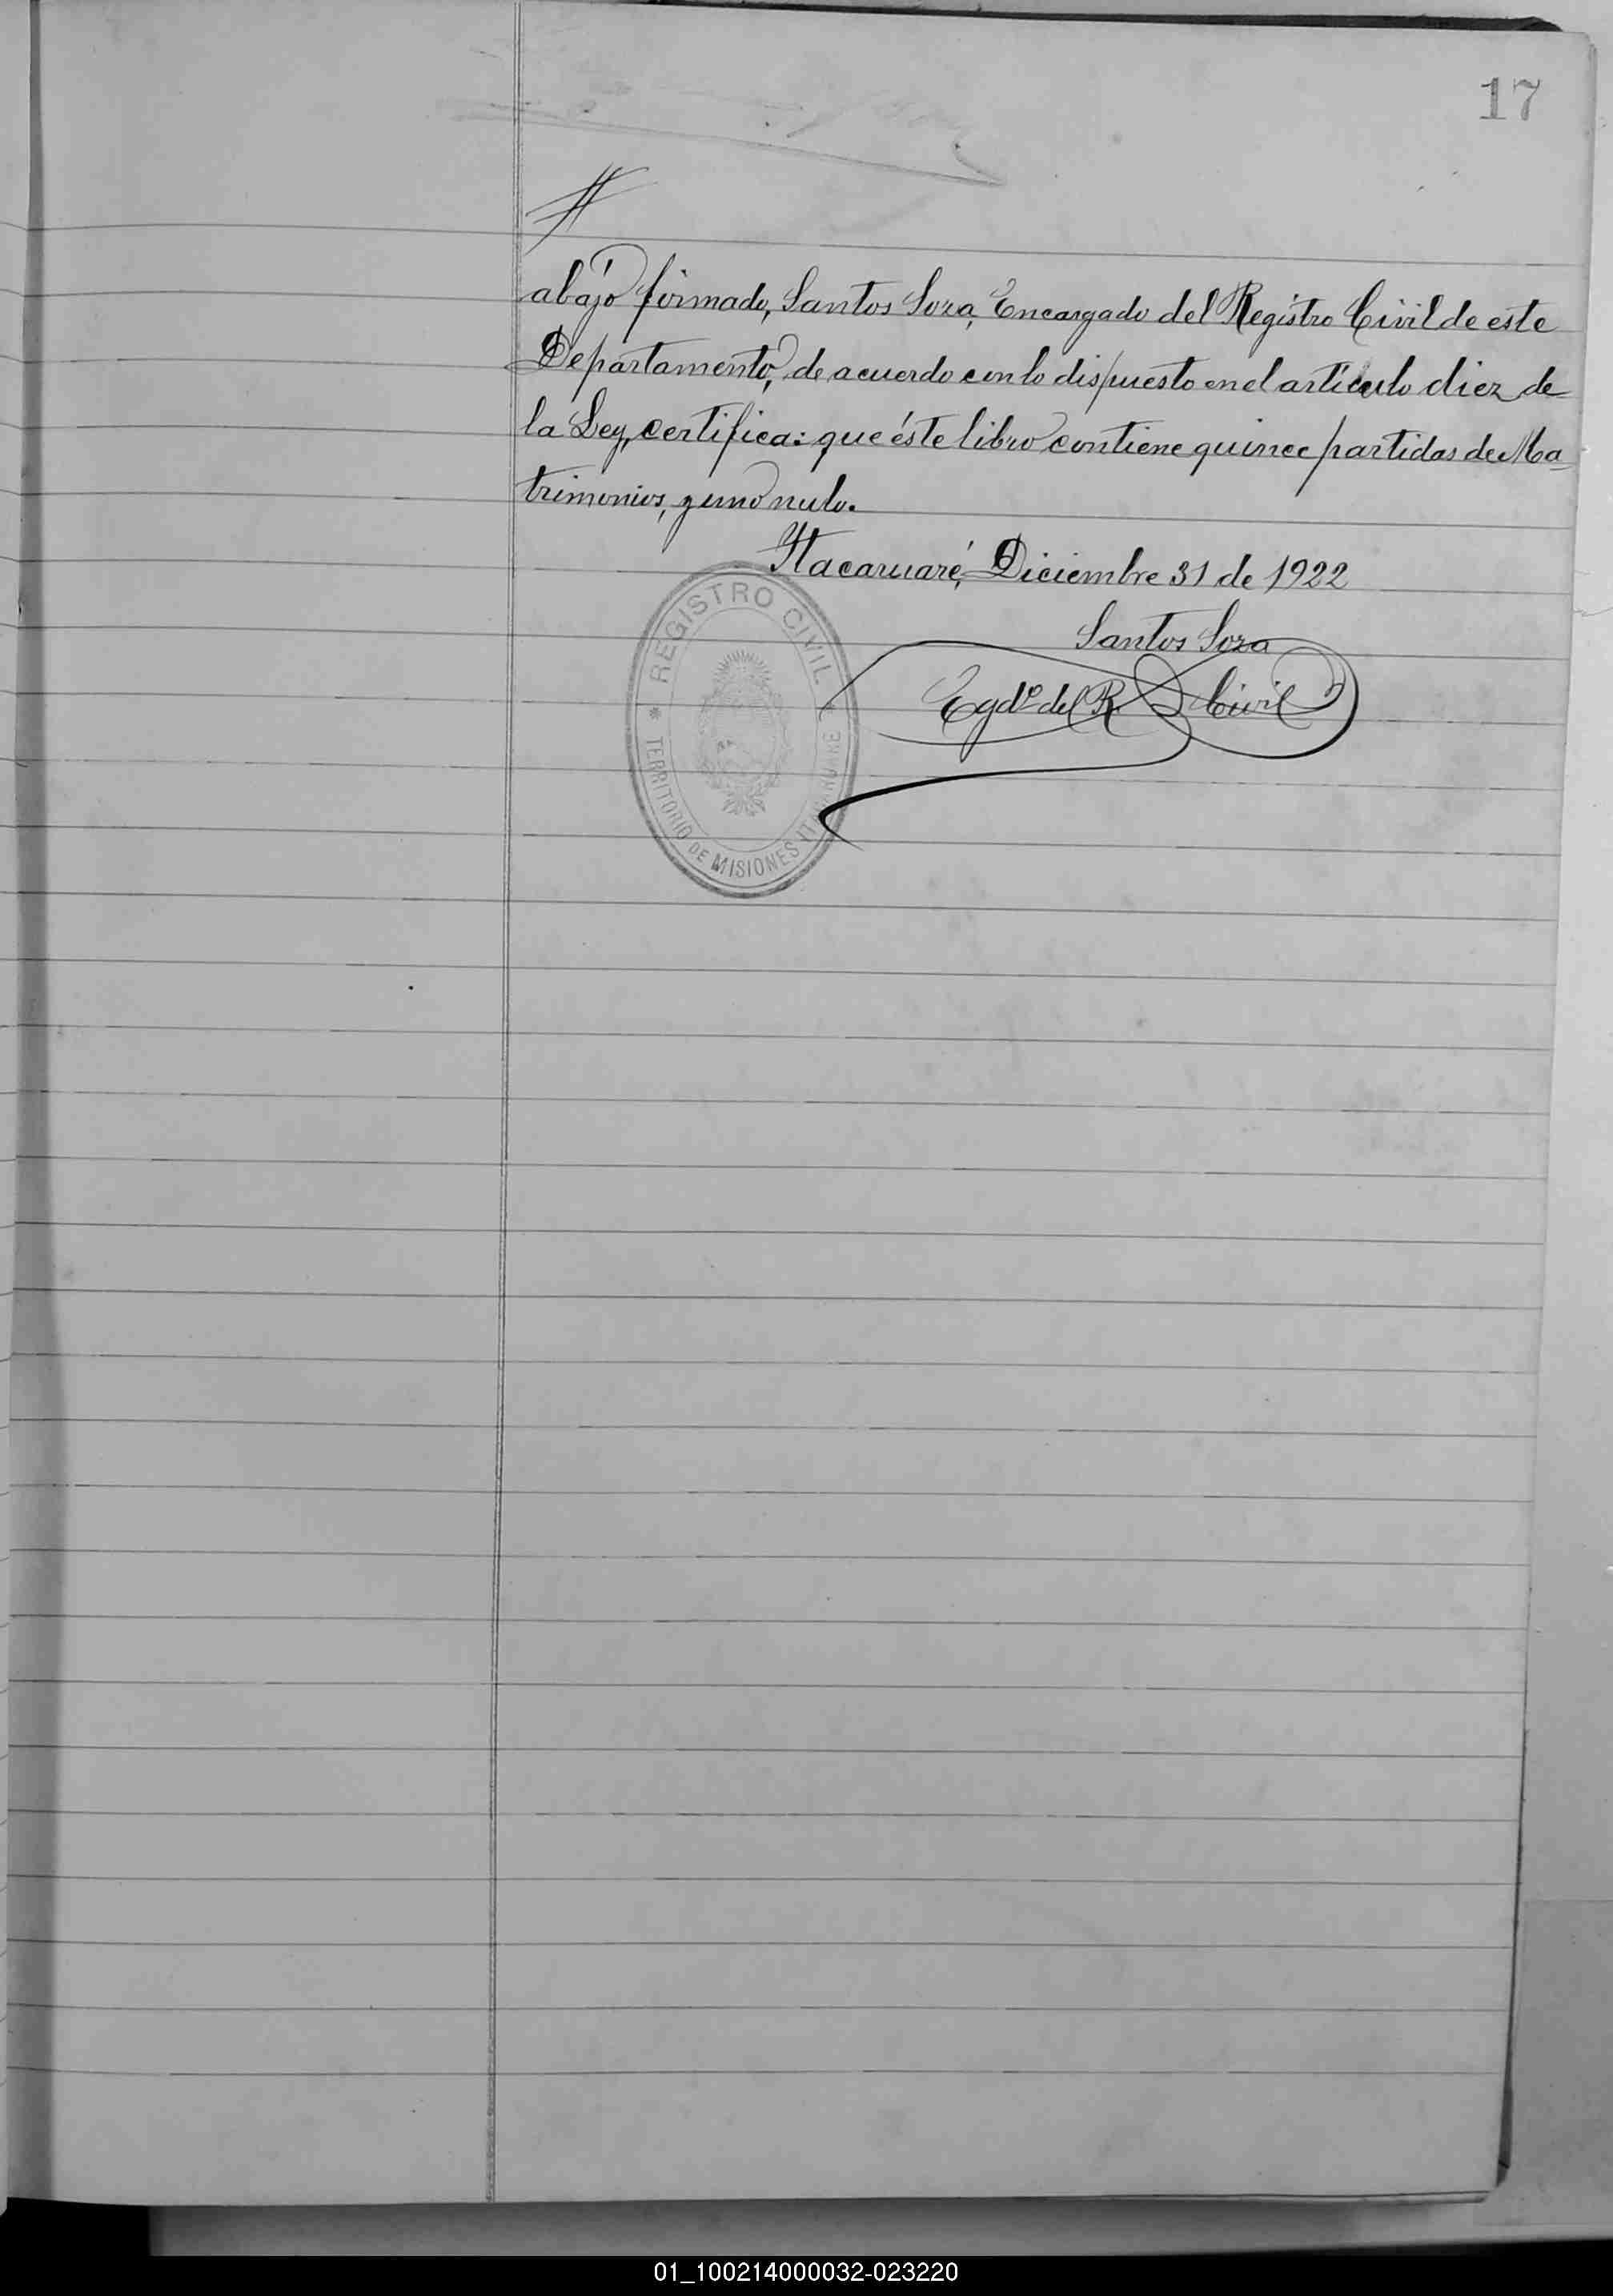 17
#
abajo firmado, Santos Soza, Encargado del Registro Civil de este
Departamento, de acuerdo con lo dispuesto en el artículo diez de
la Ley, certifica: que éste libro contiene quince partidas de Ma-
trimonios, y uno nulo.
Itacaruaré, Diciembre 31 de 1922
Santos Soza
Egdº del R. Civil
REGISTRO CIVIL
TERRITORIO DE MISIONES ITACARUARE
01_100214000032-023220